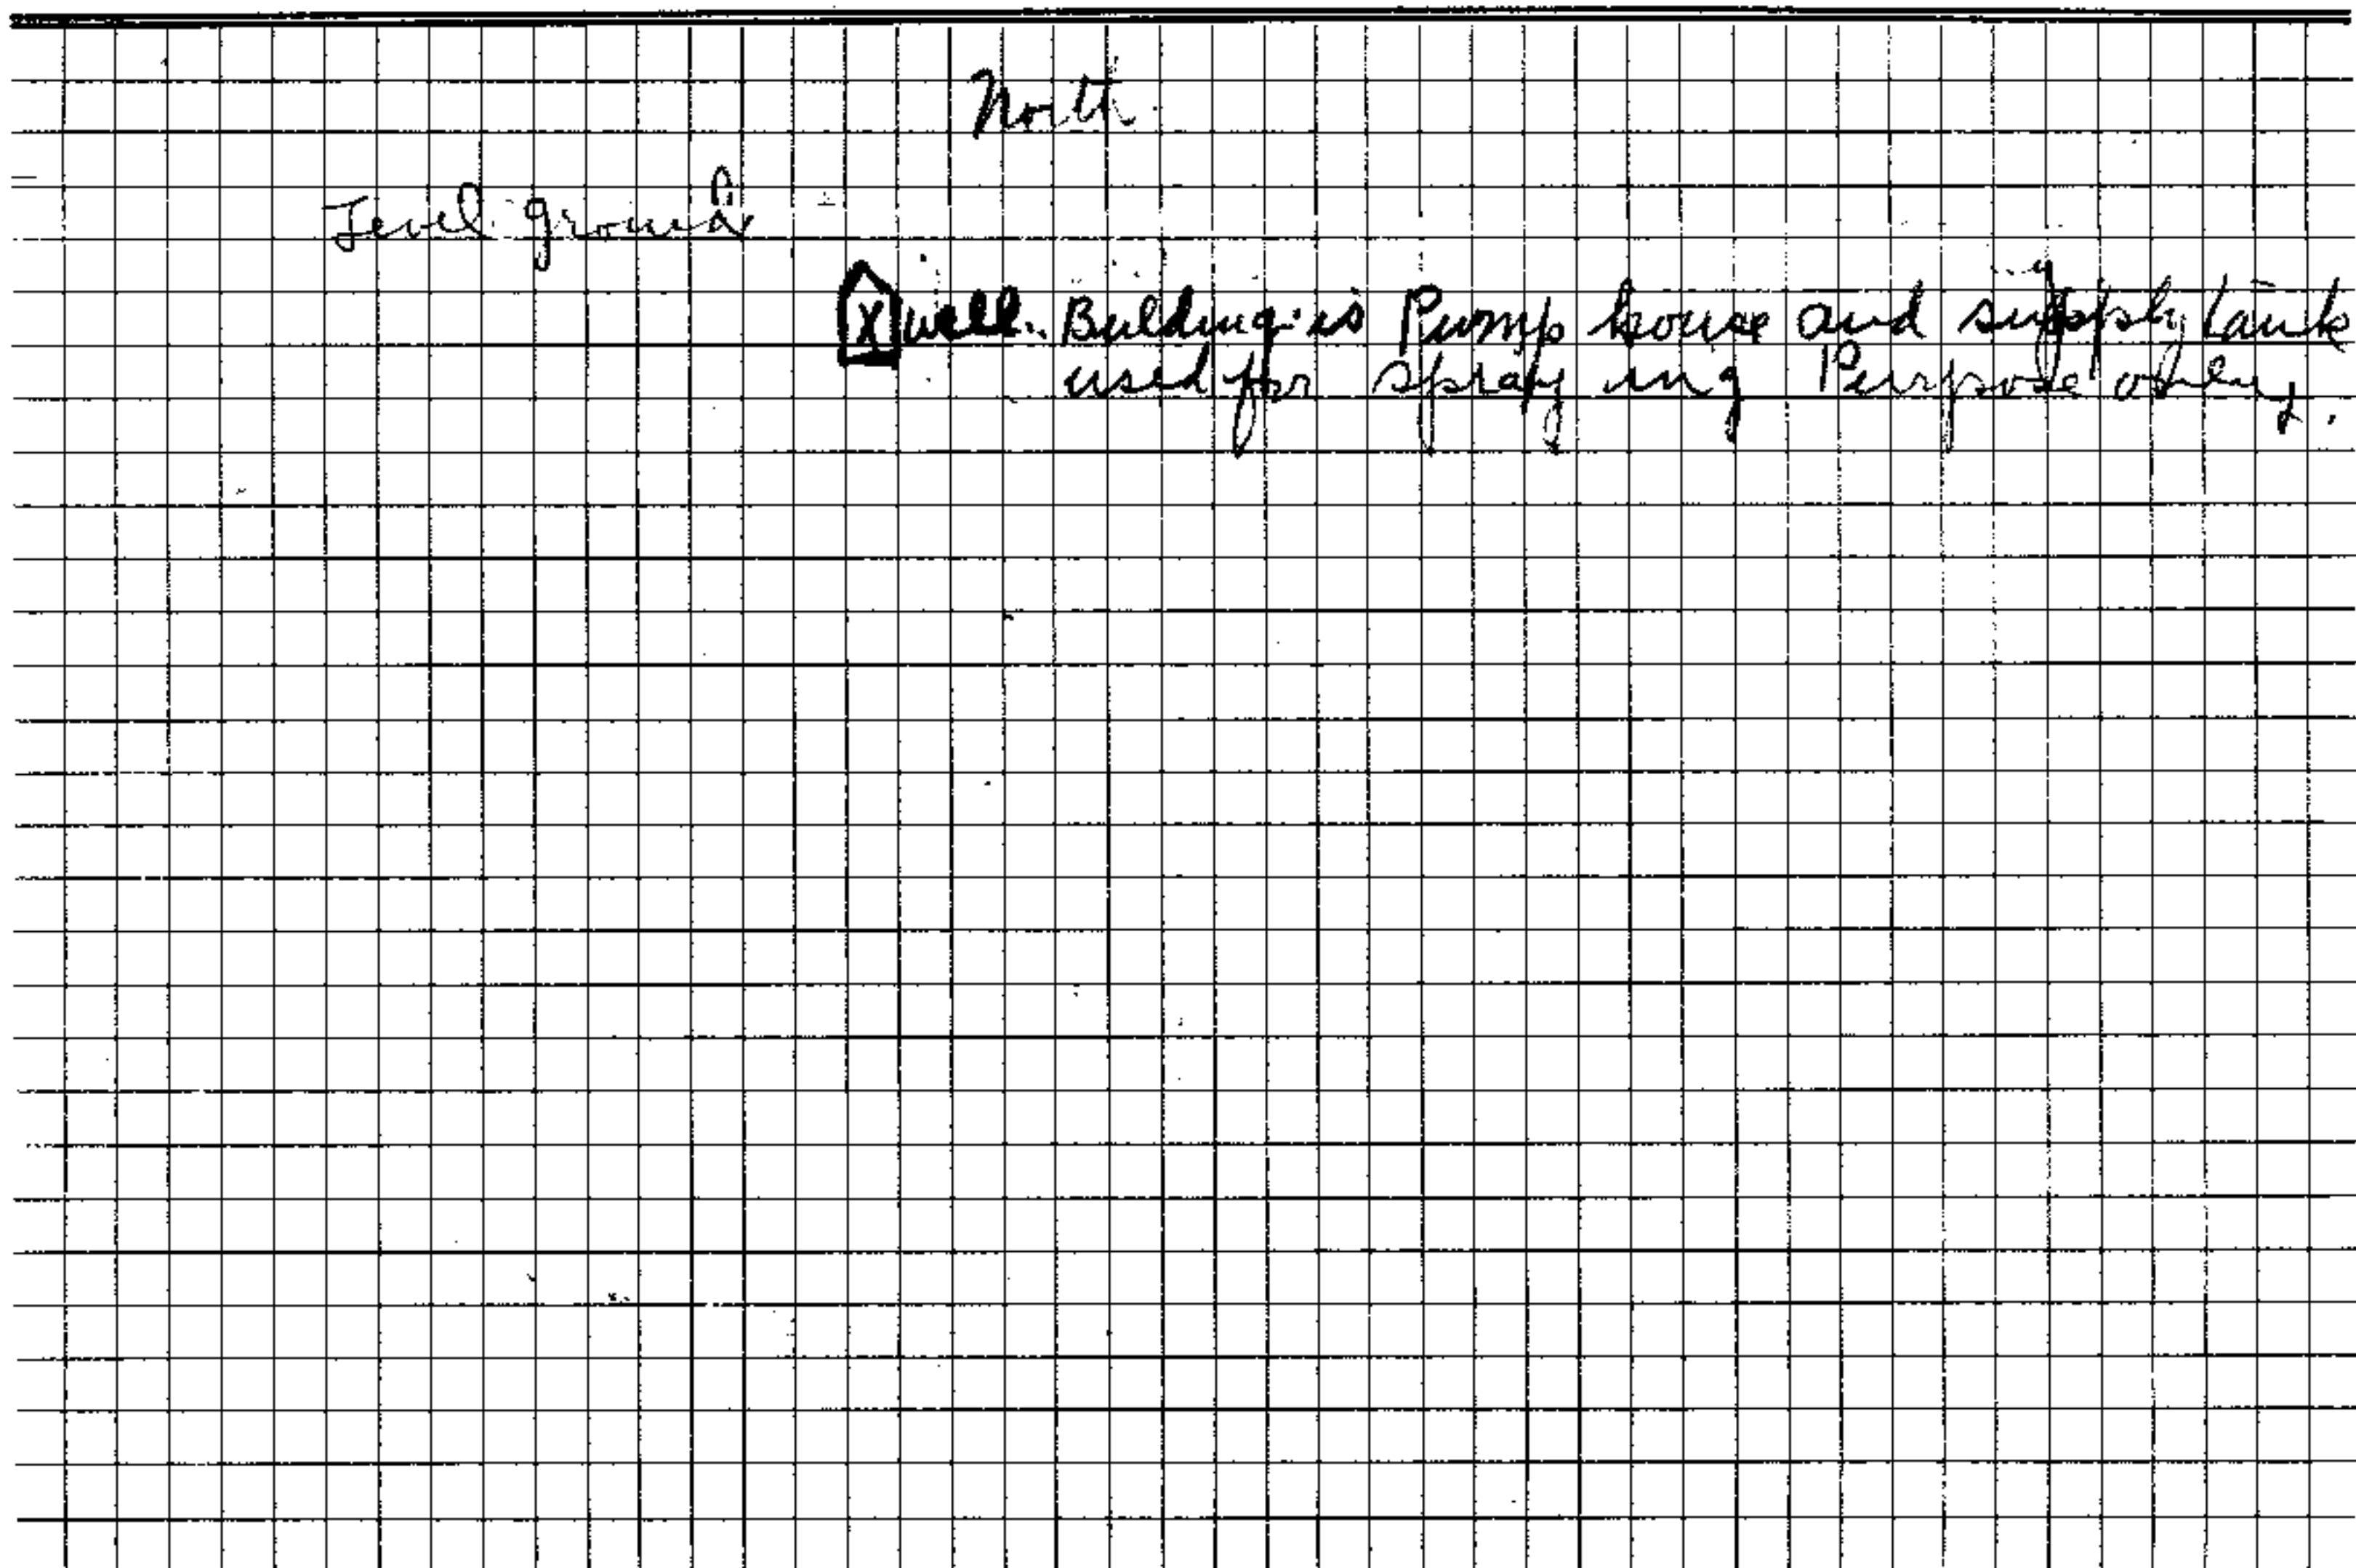 North
Level ground
X well. Building is Pump house and supply tank
used for spraying Purpose only.